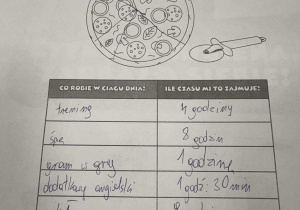 CO ROBIĘ W CIĄGU DNIA? ILE CZASU MI TO ZAJMUJE?
trening 4 godziny
śpię 8 godzin
gram w gry 1 godzinę
dodatkowy angielski 1 godz. 30 min